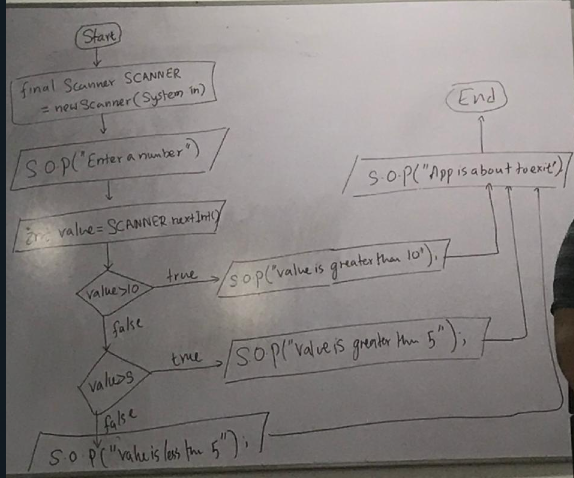 Start
final Scanner SCANNER
= new Scanner(System in)
S.O.P("Enter a number")
int value = SCANNER nextInt()
value>10
true
S.O.P("value is greater than 10");
false
value>5
true
S.O.P("value is greater than 5");
false
S.O.P("value is less than 5");
S.O.P("App is about to exit")
End